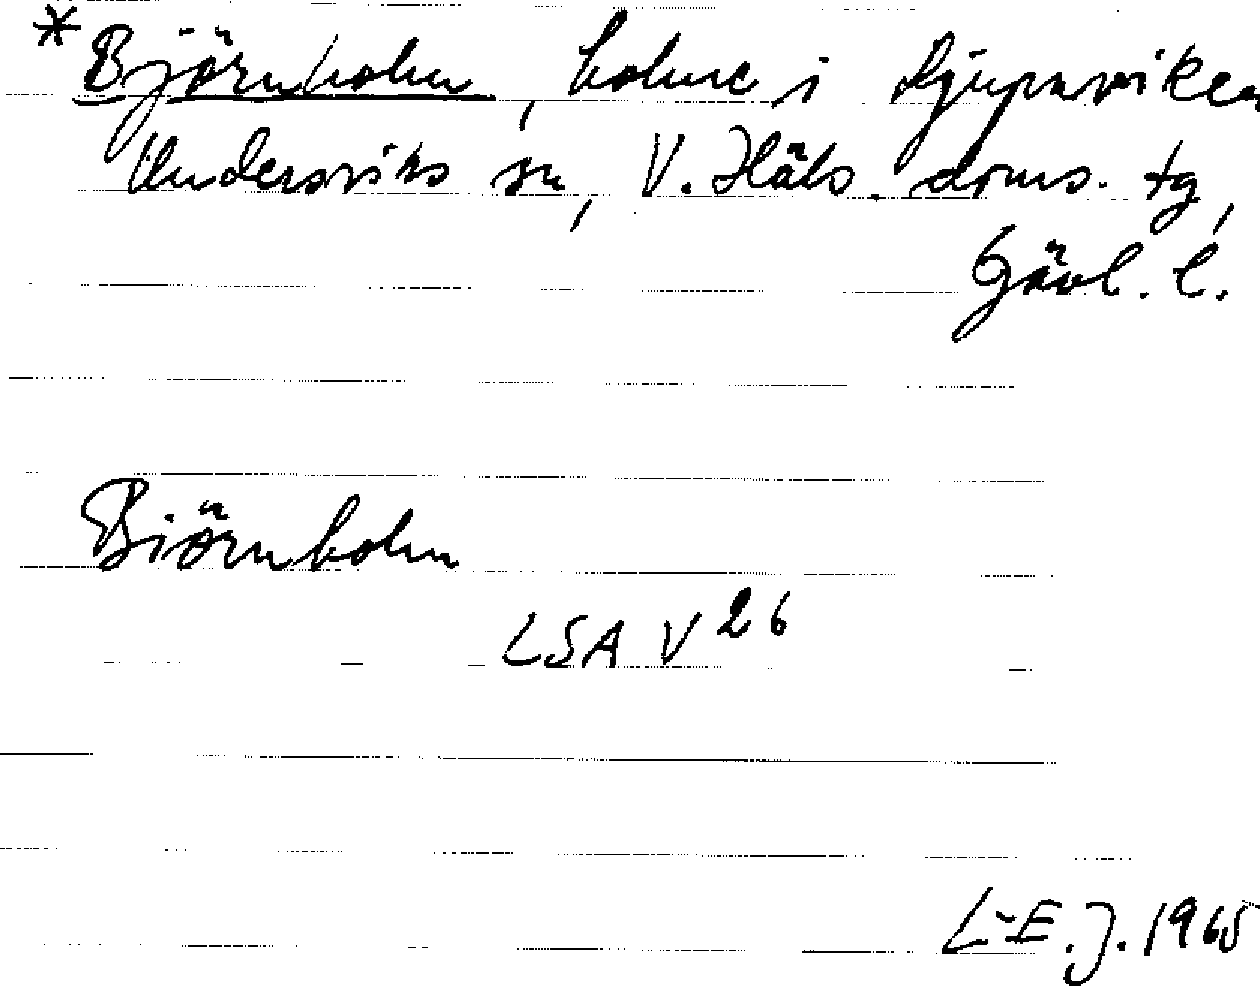 * Björnholm, holme i Djupaviken
Undersviks sn, V. Häls. doms. tg,
Gävl. l.
Biörnholm
LSA V 26
L-E. J. 1965